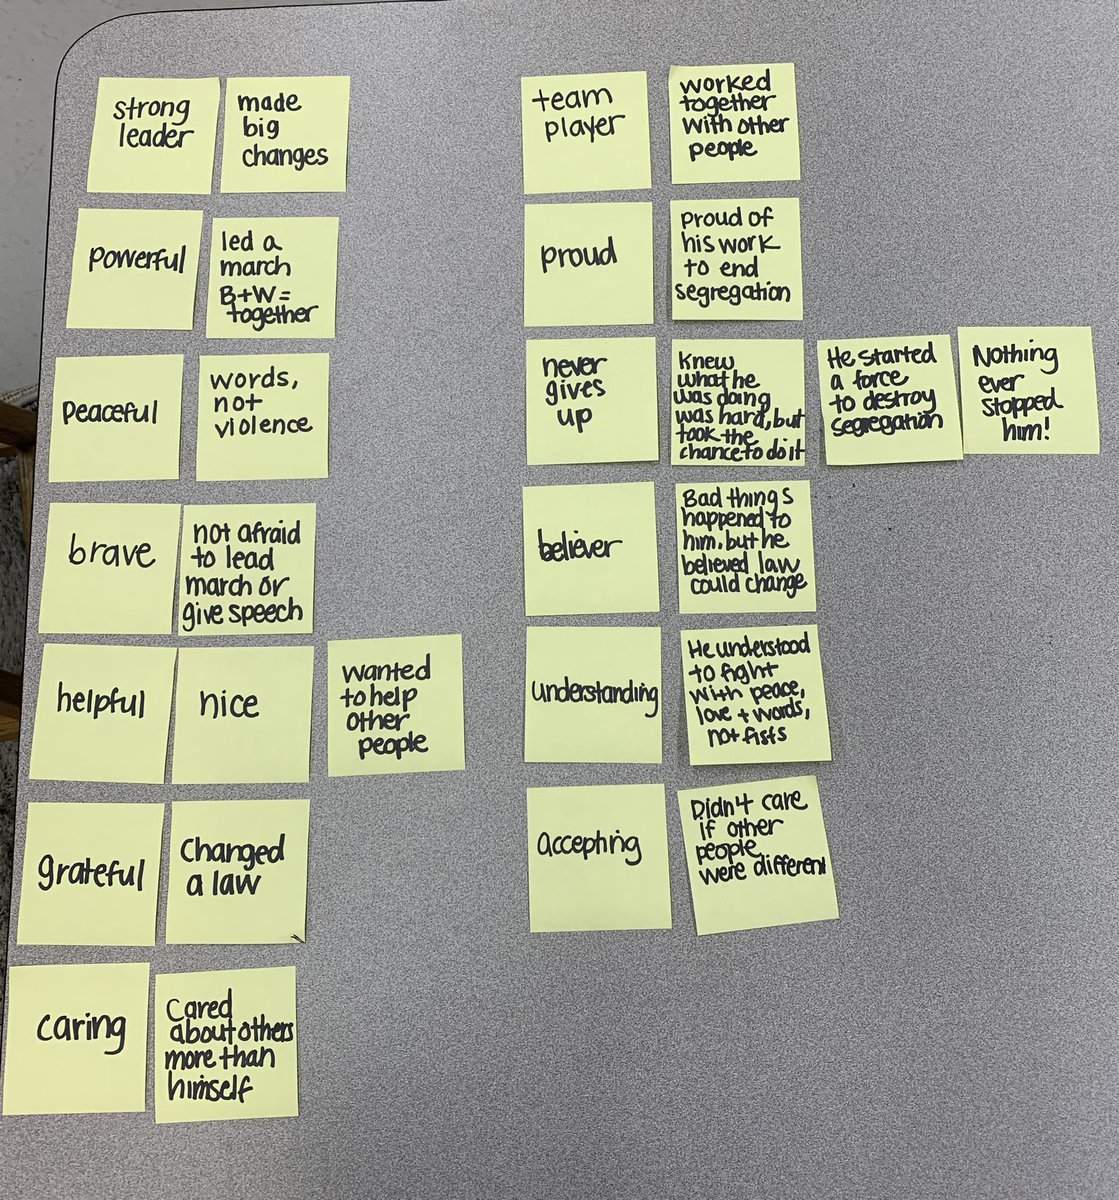 strong
leader
made
big
changes
powerful
led a
march
B+W=
together
peaceful
words,
not
violence
brave
not afraid
to lead
march or
give speech
helpful
nice
wanted
to help
other
people
grateful
Changed
a law
caring
Cared
about others
more than
himself
team
player
worked
together
with other
people
proud
proud of
his work
to end
segregation
never
gives
up
Knew
what he
was doing
was hard, but
took the
chance to do it
He started
a force
to destroy
segregation
Nothing
ever
stopped
him!
believer
Bad things
happened to
him, but he
believed law
could change
understanding
He understood
to fight
with peace,
love + words,
not fists
accepting
Didn't care
if other
people
were different